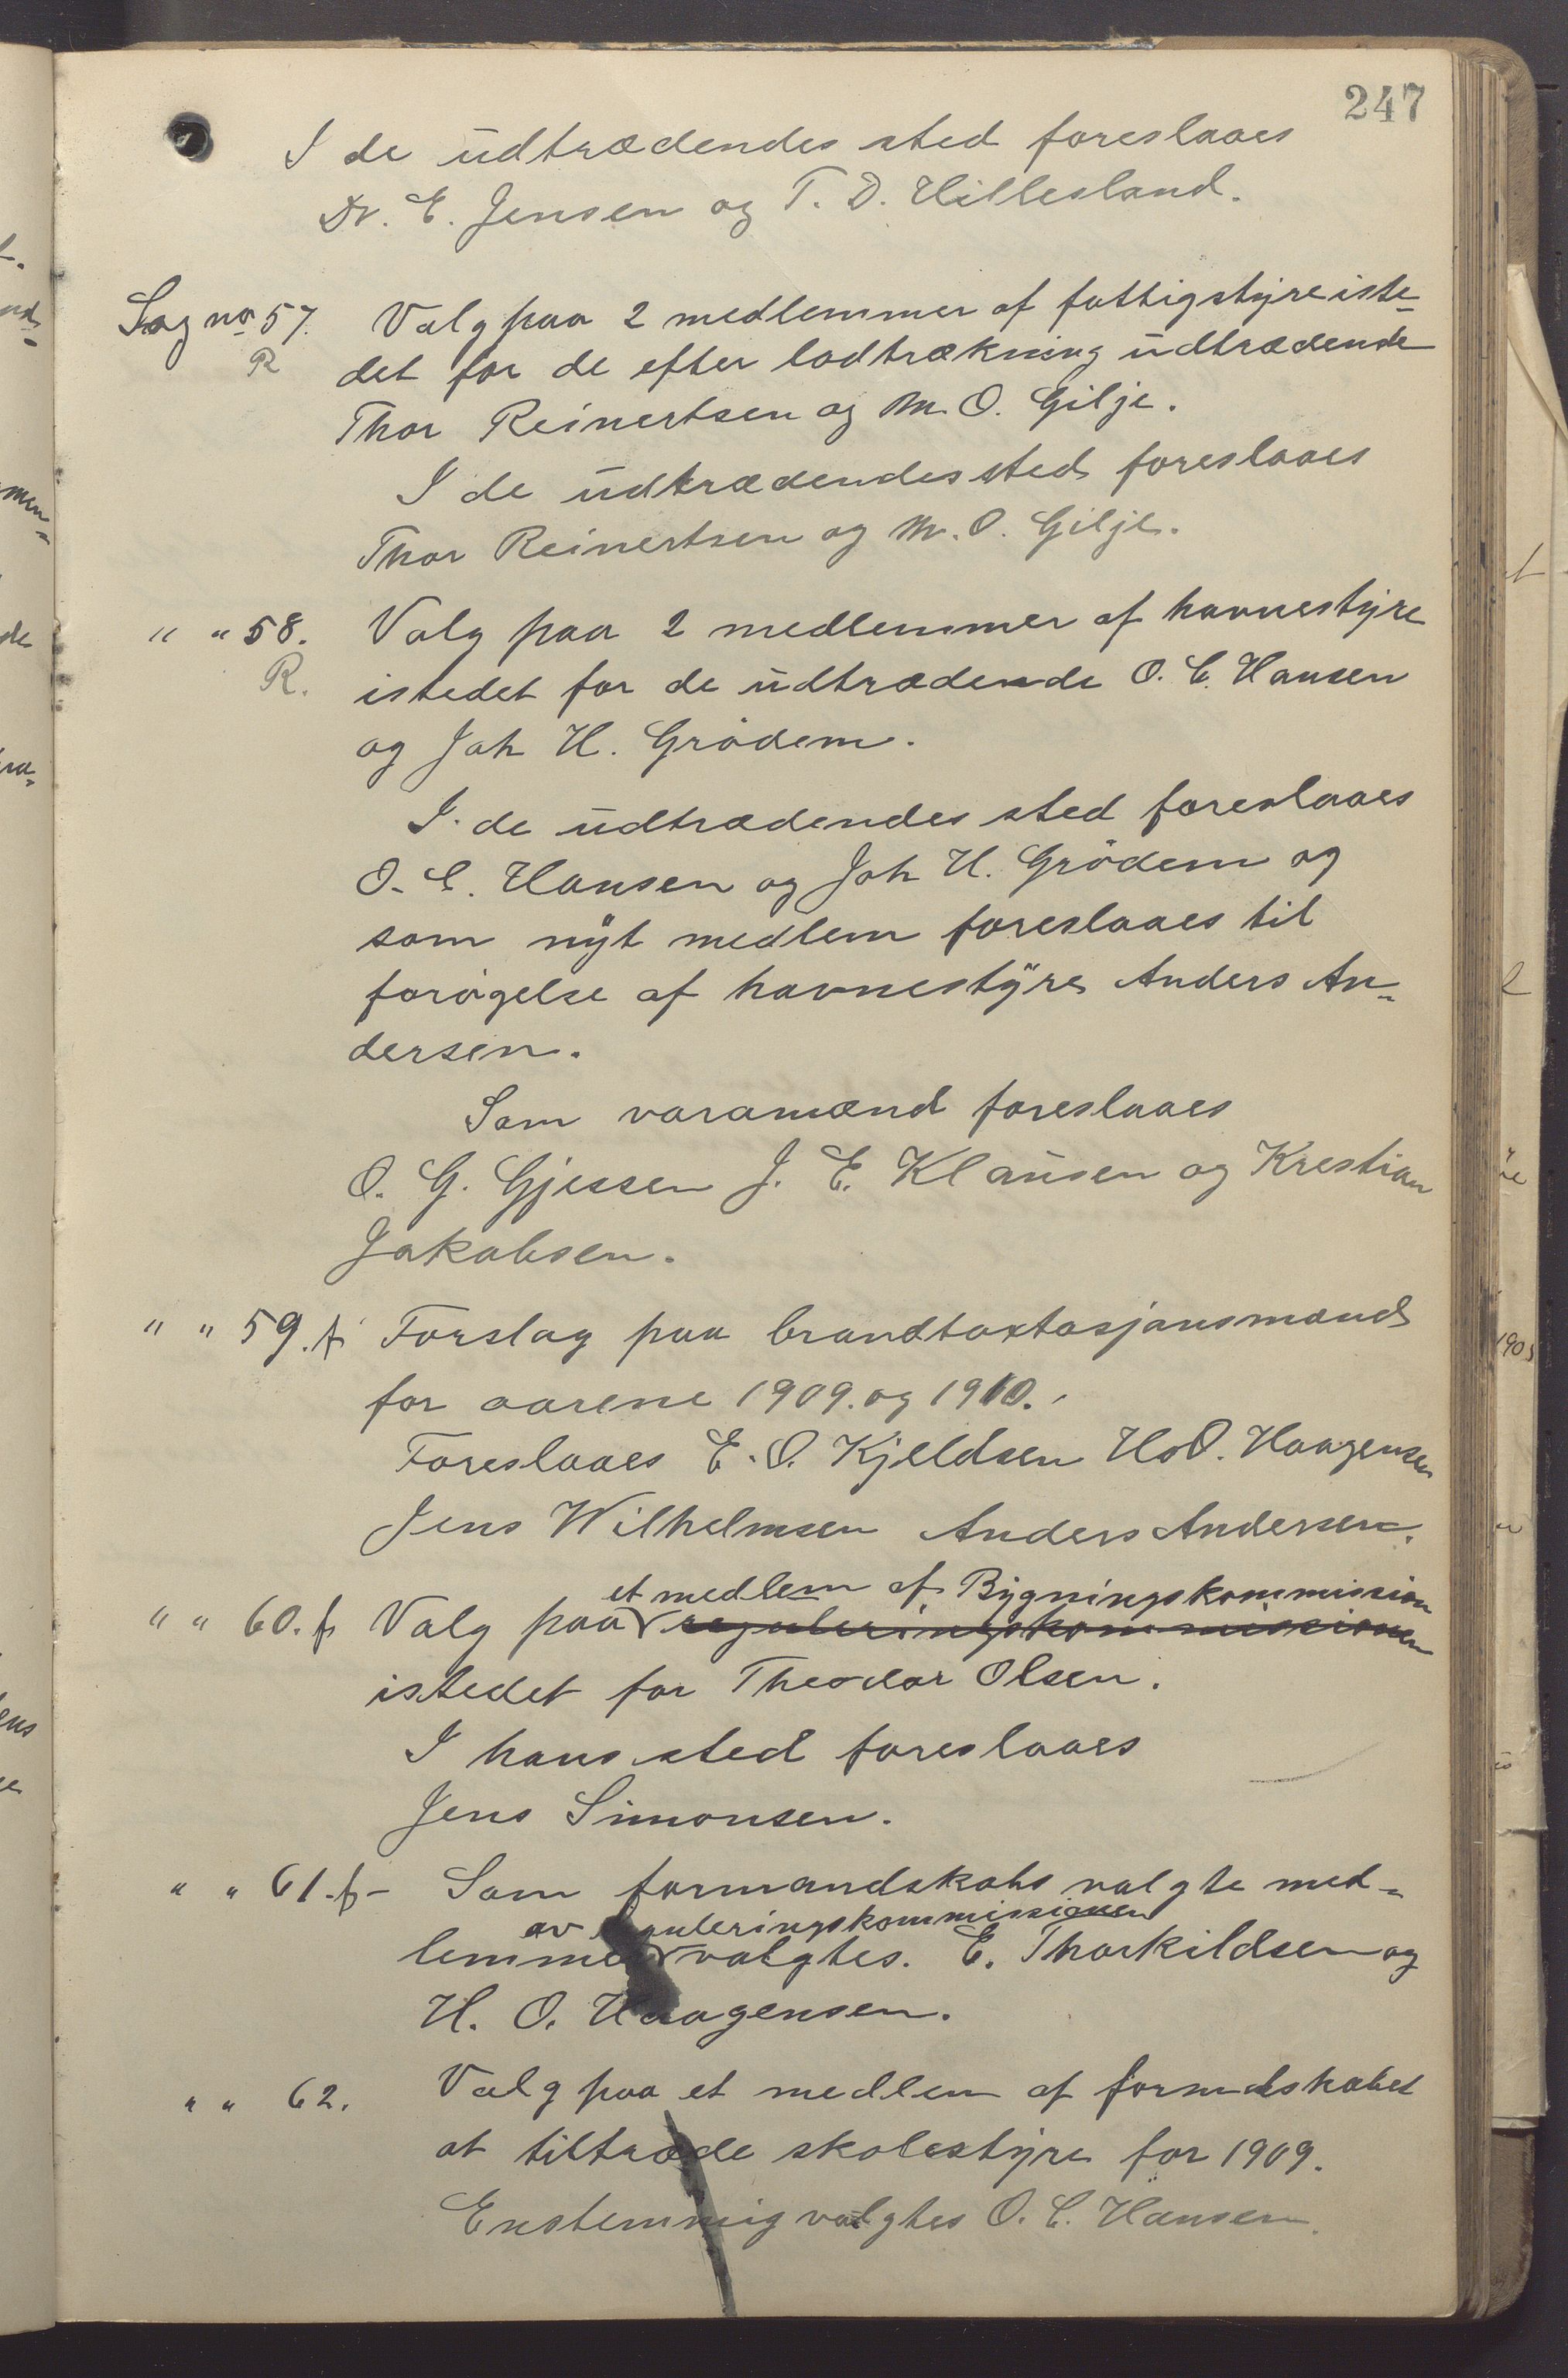 247
I de udtrædendes sted foreslaaes
Dr. E. Jensen og T. D. Hillesland.
Sag no 57. Valg paa 2 medlemmer af fattigstyre iste-
R det for de efter lodtrækning udtrædende
Thor Reinertsen og M. O. Gilje.
I de udtrædendes sted foreslaaes
Thor Reinertsen og M. O. Gilje.
" " 58. Valg paa 2 medlemmer af havnestyre
R. istedet for de udtrædende O. C. Hansen
og Joh H. Grödem.
I de udtrædendes sted foreslaaes
O. C. Hansen og Joh H. Grödem og
som nyt medlem foreslaaes til
forögelse af havnestyre Anders An-
dersen.
Som varamænd foreslaaes
O. G. Gjessen J. E. Klausen og Krestian
Jakobsen.
" " 59. f Forslag paa brandtaxtasjonsmænd
for aarene 1909. og 1910.
Foreslaaes E. O. Kjeldsen H. O. Haagensen
Jens Wilhelmsen Anders Andersen.
et medlem af Bygningskommission
" " 60. f Valg paa reguleringskommissionen
istedet for Theodor Olsen.
I hans sted foreslaaes
Jens Simonsen.
" " 61. f - Som formandskabs valgte med-
av reguleringskommissionen
lemmer valgtes. E. Thorkildsen og
H. O. Haagensen.
" " 62. Valg paa et medlem af formdskabet
at tiltræde skolestyre for 1909.
Enstemmig valgtes O. C. Hansen.